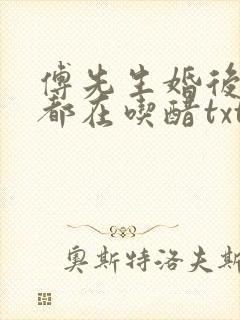 傅先生婚後
都在喫醋txt
奥斯特洛夫斯